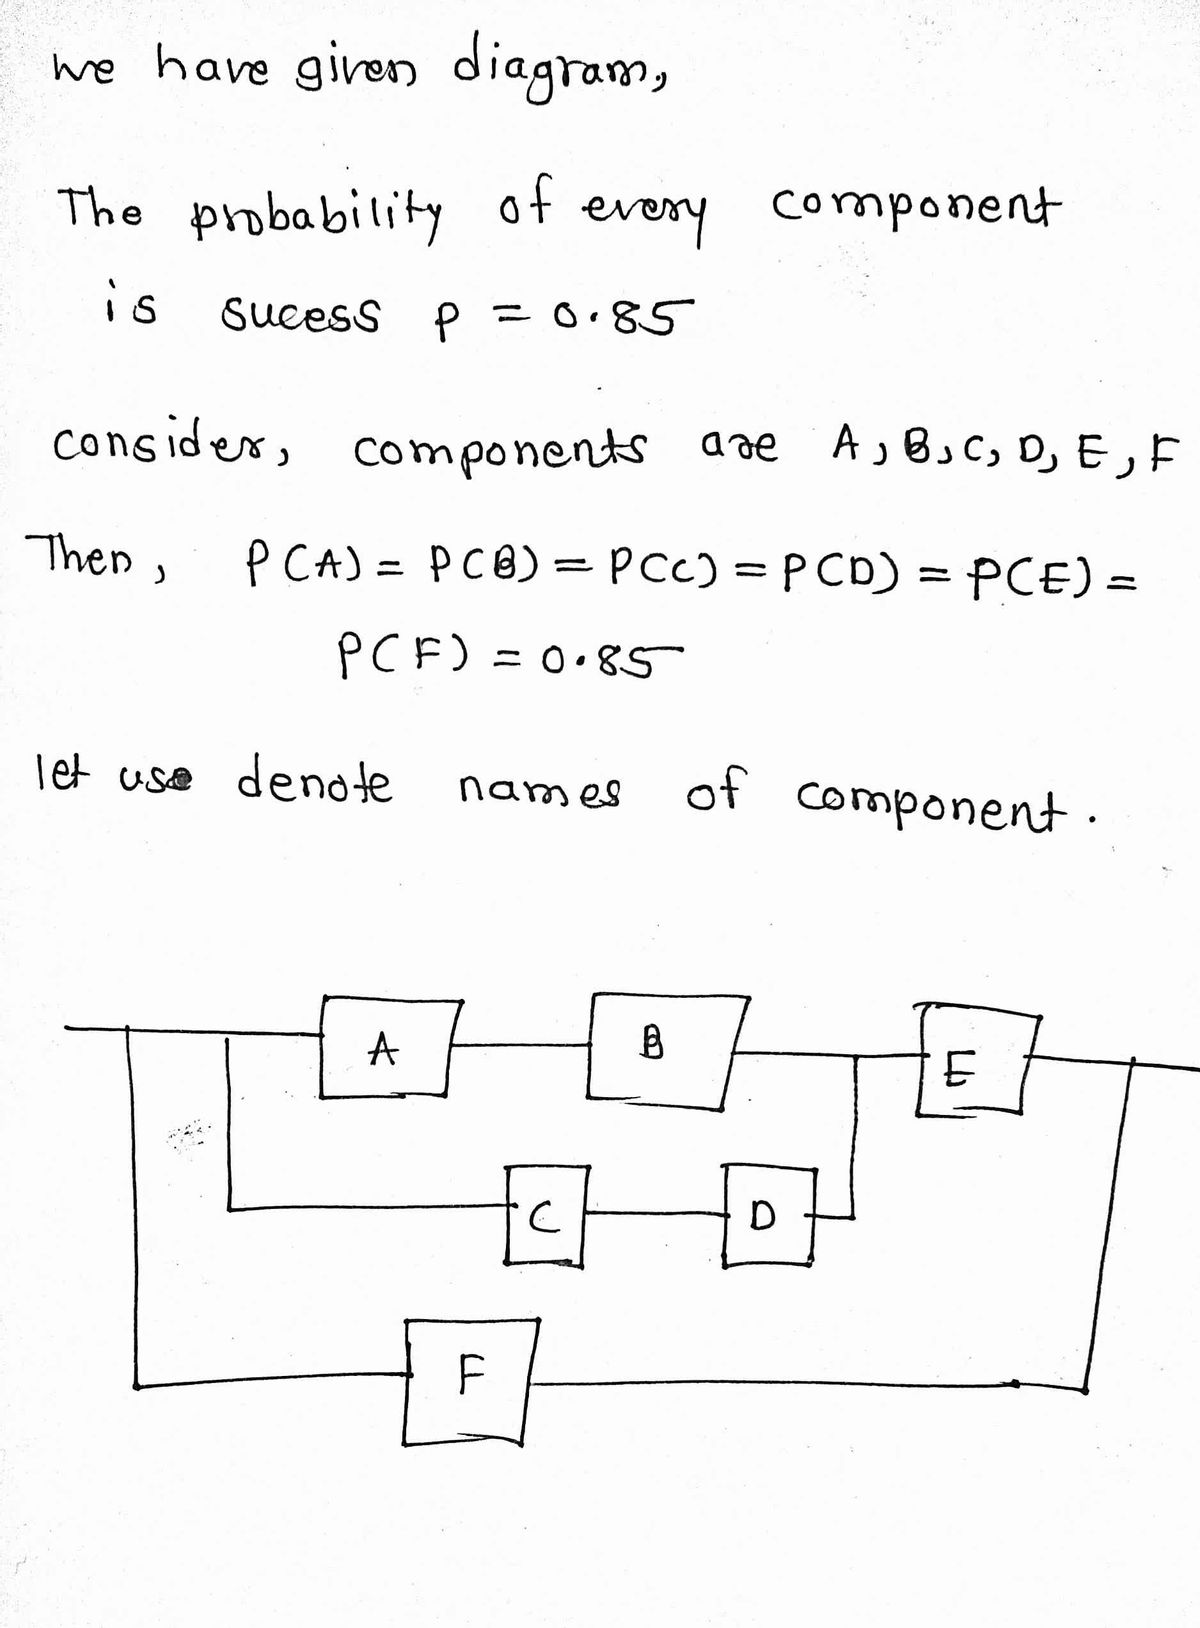 we have given diagram,
The probability of every component
is sucess p = 0.85
consider, components are A, B, C, D, E, F
Then, P(A) = P(B) = P(C) = P(D) = P(E) =
P(F) = 0.85
let use denote names of component.
A
B
E
C
D
F